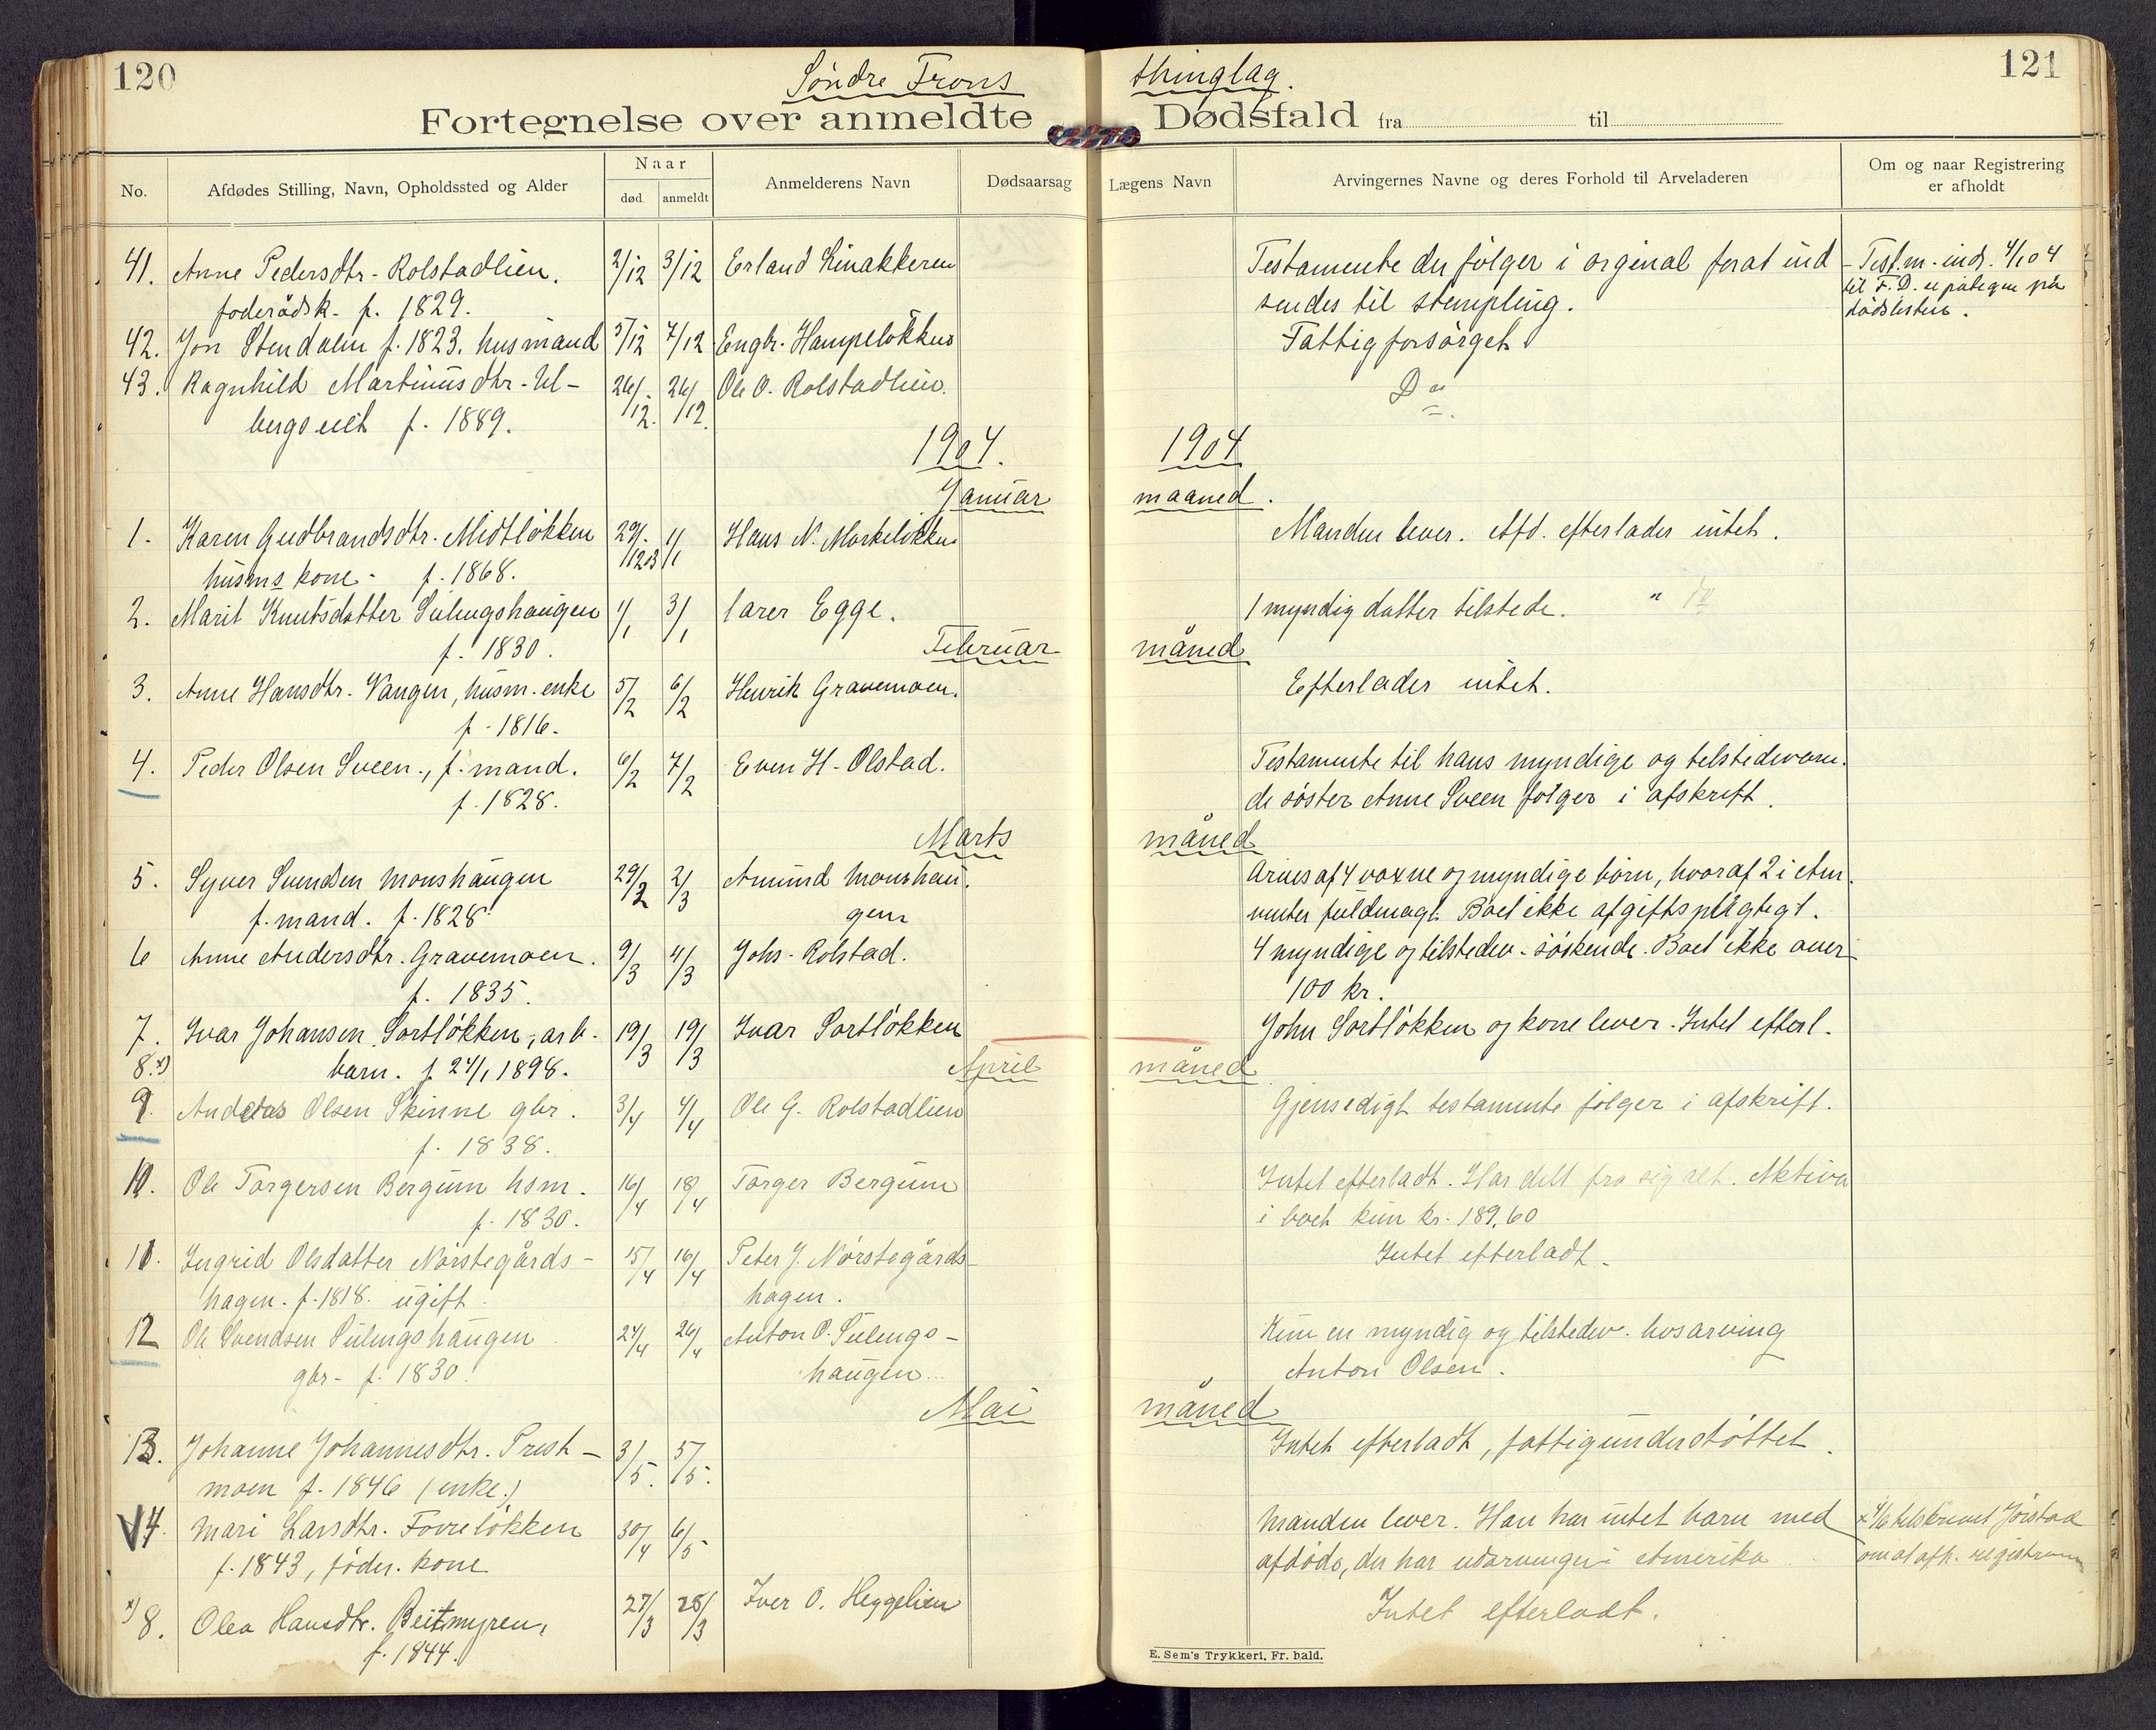 120
Søndre Frons
thinglag.
121
Fortegnelse over anmeldte Dødsfald fra til
No.
Afdødes Stilling, Navn, Opholdssted og Alder
Naar
død anmeldt
Anmelderens Navn
Dødsaarsag
Lægens Navn
Arvingernes Navne og deres Forhold til Arveladeren
Om og naar Registrering
er afholdt
41. Anne Pedersdtr. Rolstadlien. 2/12 3/12 Erland Linakkeren Testamente der følger i orginal forat ind - Test.m. inds. 4/1 04
foderådsk. f. 1829. sendes til stempling. til F.D. se påtegn på
dødslisten.
42. Jon Stendalen f. 1823. husmand 5/12 7/12 Engbr. Hampeløkken Fattigforsørget
43. Ragnhild Martinusdtr. Ul- 26/12. 26/12. Ole O. Rolstadlien. Do
bergseiet f. 1889.
1904. 1904
Januar maaned.
1. Karen Gudbrandsdtr. Midtløkken 29/12 03 1/1 Hans N. Morkeløkken Manden lever. Afd. efterlader intet.
husms kone. f. 1868.
2. Marit Knutsdatter Sulungshaugen 1/1 3/1 Larer Egge. 1 myndig datter tilstede. "
f. 1830.
Februar måned
3. Anne Hansdtr. Vangen, husm. enke 5/2 6/2 Henrik Gravemoen. Efterlader intet.
f. 1816.
4. Peder Olsen Sveen., f. mand. 6/2 7/2 Even H. Olstad. Testamente til hans myndige og tilstedeværen-
f. 1828. de søster Anne Sveen følger i afskrift.
Marts måned
5. Syver Svendsen Monshaugen 29/2 2/3 Amund Monshau- Arves af 4 voxne og myndige børn, hvoraf 2 i Am.
f. mand. f. 1828 gen venter fuldmagt. Boet ikke afgiftspligtigt.
6 Anne Andersdtr. Gravemoen. 2/3 4/3 Johs. Rolstad. 4 myndige og tilstedev. søskende. Boet ikke over
f. 1835. 100 kr.
7. Ivar Johansen Sortløkken, arb. 19/3 19/3 Ivar Sortløkken John Sortløkken og kone lever. Intet efterl.
8.x) barn. f. 24/1 1898.
April måned
9. Andreas Olsen Skinne gbr. 3/4 4/4 Ole G. Rolstadlien Gjensedigt testamente følger i afskrift.
f. 1838.
10. Ole Torgersen Bergum hsm. 16/4 18/4 Torger Bergum Intet efterladt. Har delt fra sig alt. Aktiva
f. 1830. i boet kun kr. 189,60
11. Ingrid Olsdatter Nørstegårds- 15/4 16/4 Peter J. Nørstegårds- Intet efterladt.
hagen. f. 1818. ugift. hagen.
12 Ole Svendsen Sulungshaugen 24/4 26/4 Anton O. Sulungs- Kun en myndig og tilstedev. livsarving
gbr. f. 1830. haugen. Anton Olsen.
Mai måned
13. Johanne Johannesdtr. Prest- 3/5. 5/5. Intet efterladt, fattigunderstøttet.
moen f. 1846 (enke.)
14. Mari Larsdtr. Forreløkken 30/4 6/5 Manden lever. Han har intet barn med x 4/6 tilskrevet Jørstad
f. 1843, føder. kone afdøde, der har udarvinger i Amerika om at afh. registrering
x) 8. Olea Hansdtr. Beitmyren, 27/3 28/3 Iver O. Heggelien Intet efterladt.
f. 1844.
E. Sem's Trykkeri, Fr. hald.